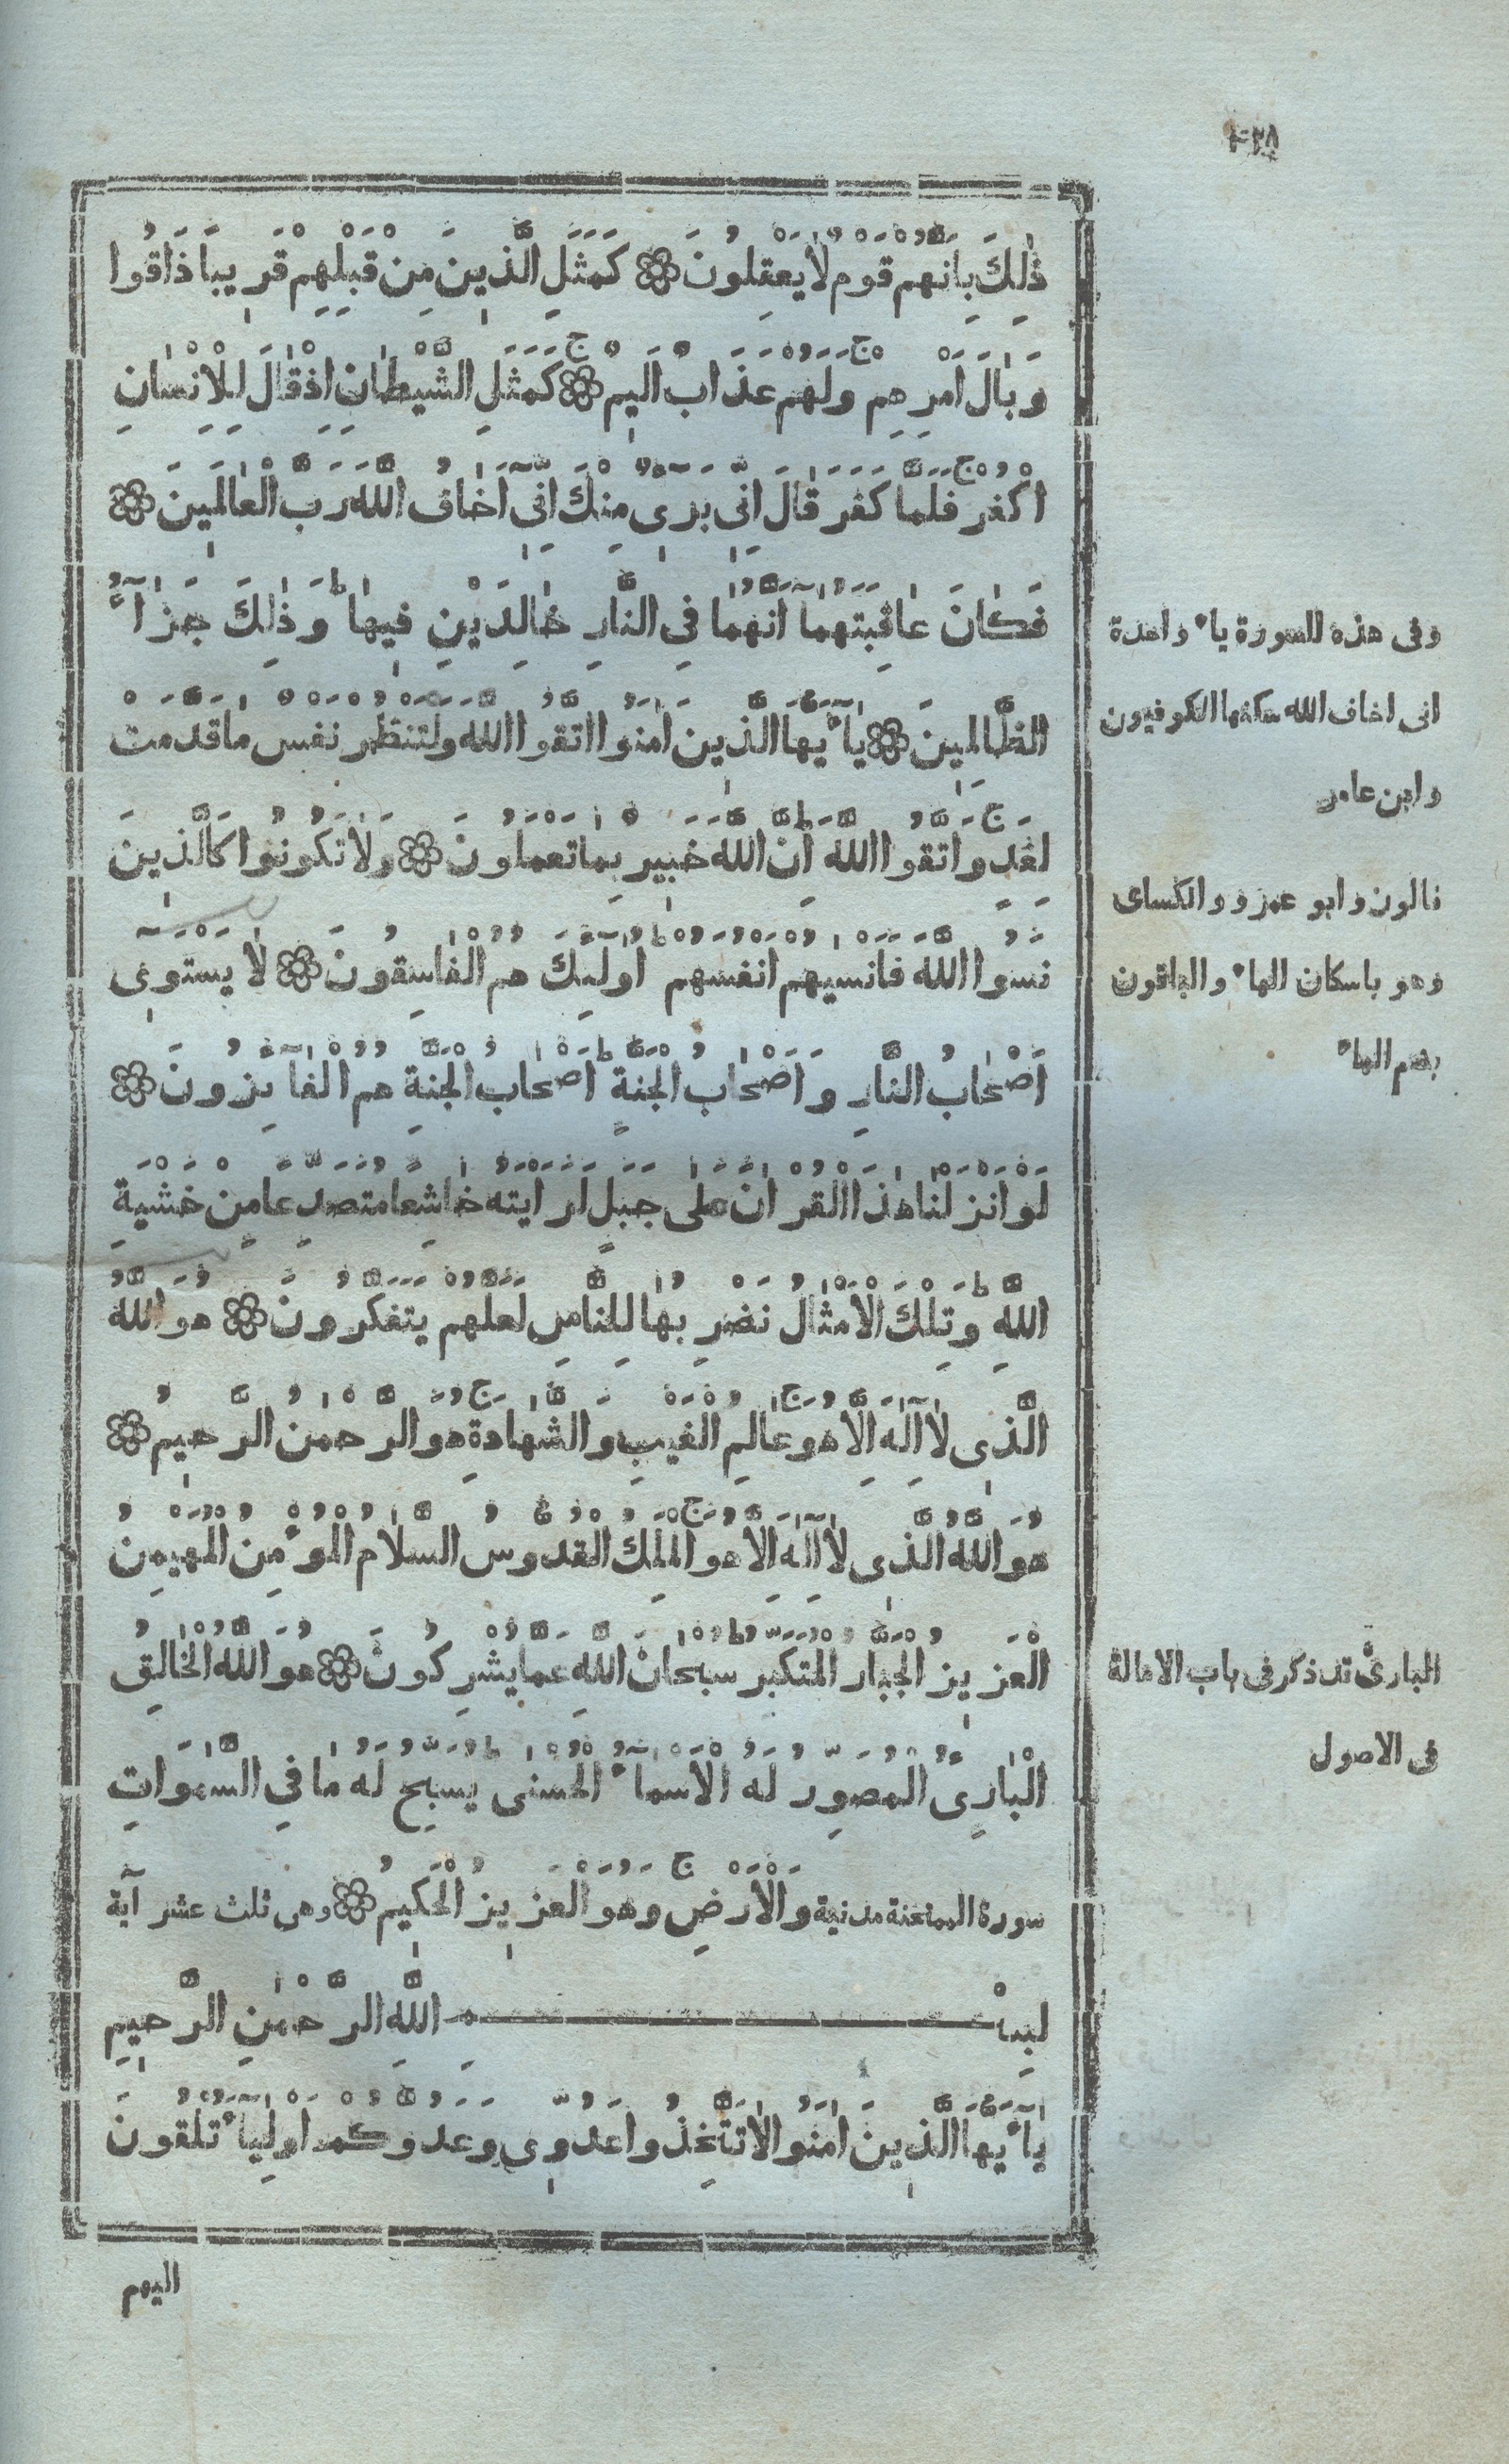 ذٰلِكَ بِاَنَّهُمْ قَوْمٌ لَا يَعْقِلُونَ ۞ كَمَثَلِ الَّذِينَ مِنْ قَبْلِهِمْ قَرِيبًا ذَاقُوا
وَبَالَ اَمْرِهِمْ ج وَلَهُمْ عَذَابٌ اَلِيمٌ ج ۞ كَمَثَلِ الشَّيْطَانِ اِذْ قَالَ لِلْاِنْسَانِ
اكْفُرْ ج فَلَمَّا كَفَرَ قَالَ اِنِّى بَرِىٓءٌ مِنْكَ اِنِّىٓ اَخَافُ اللَّهَ رَبَّ الْعَالَمِينَ ۞
فَكَانَ عَاقِبَتَهُمَآ اَنَّهُمَا فِى النَّارِ خَالِدَيْنِ فِيهَا ط وَذٰلِكَ جَزَآءُ
الظَّالِمِينَ ۞ يَآءَيُّهَا الَّذِينَ اٰمَنُوا اتَّقُوا اللَّهَ وَلْتَنْظُرْ نَفْسٌ مَا قَدَّمَتْ
لِغَدٍ ج وَاتَّقُوا اللَّهَ ط اِنَّ اللَّهَ خَبِيرٌ بِمَا تَعْمَلُونَ ۞ وَلَا تَكُونُوا كَالَّذِينَ
نَسُوا اللَّهَ فَاَنْسٰيهُمْ اَنْفُسَهُمْ ط اُولٰٓئِكَ هُمُ الْفَاسِقُونَ ۞ لَا يَسْتَوِىٓ
اَصْحَابُ النَّارِ وَاَصْحَابُ الْجَنَّةِ ط اَصْحَابُ الْجَنَّةِ هُمُ الْفَآئِزُونَ ۞
لَوْ اَنْزَلْنَا هٰذَا الْقُرْاٰنَ عَلٰى جَبَلٍ لَرَاَيْتَهُ خَاشِعًا مُتَصَدِّعًا مِنْ خَشْيَةِ
اللَّهِ ط وَتِلْكَ الْاَمْثَالُ نَضْرِبُهَا لِلنَّاسِ لَعَلَّهُمْ يَتَفَكَّرُونَ ۞ هُوَ اللَّهُ
الَّذِى لَآ اِلٰهَ اِلَّا هُوَ ج عَالِمُ الْغَيْبِ وَالشَّهَادَةِ ج هُوَ الرَّحْمٰنُ الرَّحِيمُ ۞
هُوَ اللَّهُ الَّذِى لَآ اِلٰهَ اِلَّا هُوَ ج الْمَلِكُ الْقُدُّوسُ السَّلَامُ الْمُوءْمِنُ الْمُهَيْمِنُ
الْعَزِيزُ الْجَبَّارُ الْمُتَكَبِّرُ ط سُبْحَانَ اللَّهِ عَمَّا يُشْرِكُونَ ۞ هُوَ اللَّهُ الْخَالِقُ
الْبَارِئُ الْمُصَوِّرُ لَهُ الْاَسْمَآءُ الْحُسْنٰى ط يُسَبِّحُ لَهُ مَا فِى السَّمٰوَاتِ
وَالْاَرْضِ ج وَهُوَ الْعَزِيزُ الْحَكِيمُ ۞
سورة الممتحنة مدنية وهى ثلث عشر آية
بِسْمِ اللَّهِ الرَّحْمٰنِ الرَّحِيمِ
يَآءَيُّهَا الَّذِينَ اٰمَنُوا لَا تَتَّخِذُوا عَدُوِّى وَعَدُوَّكُمْ اَوْلِيَآءَ تُلْقُونَ
اليهم
وفى هذه السورة ياء واحدة
انى اخاف الله سكنها الكوفيون
وابن عامر
قالون وابو عمرو والكساى
وهو باسكان الهاء والباقون
بضم الهاء
البارئ قد ذكر فى باب الامالة
فى الاصول